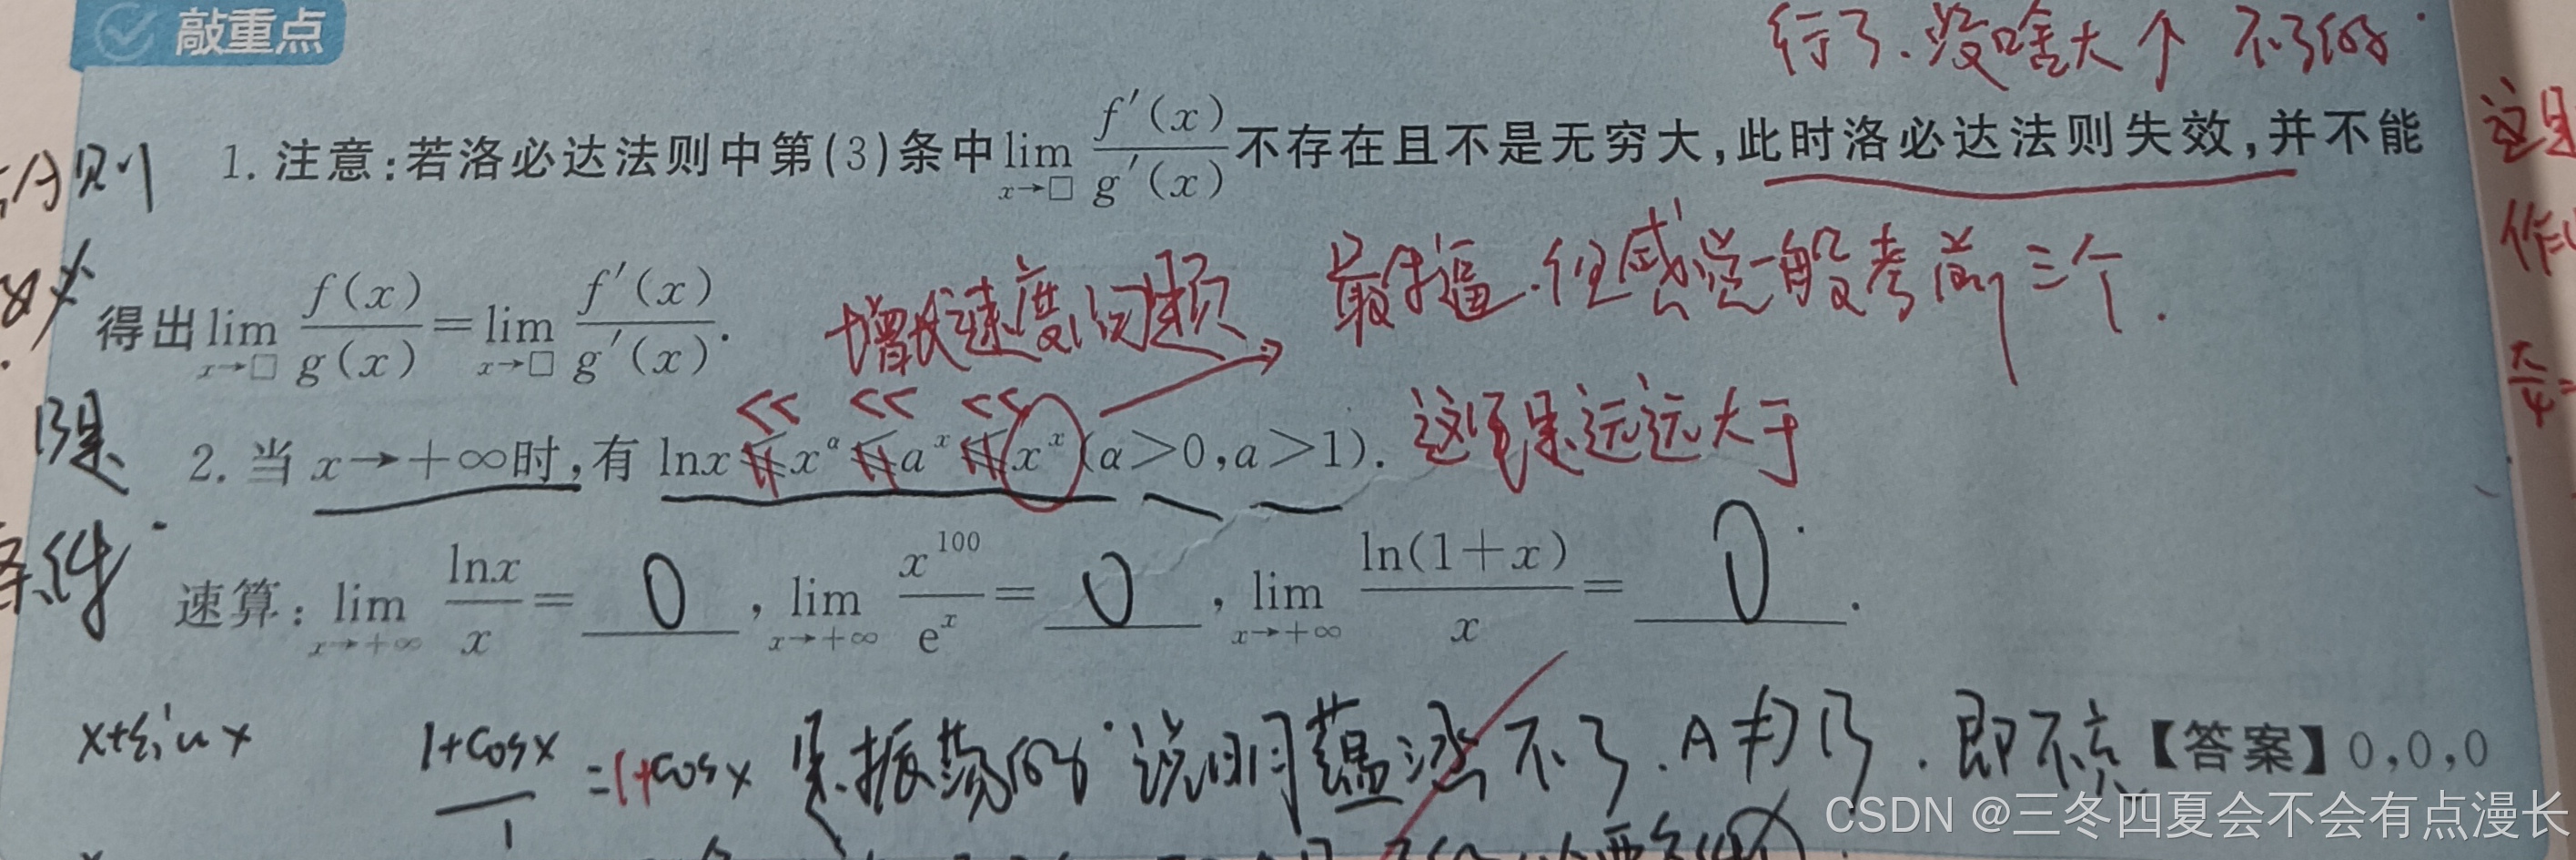 敲重点
行了.没啥大个 不了的
1. 注意:若洛必达法则中第(3)条中lim x→□ f′(x)/g′(x) 不存在且不是无穷大,此时洛必达法则失效,并不能
得出 lim x→□ f(x)/g(x) = lim x→□ f′(x)/g′(x).
增长速度问题 最牛逼.但感觉一般考前三个.
<< << <<
2. 当 x→+∞时,有 lnx ≪ x^α ≪ a^x ≪ x^x (α>0,a>1). 这里是远远大于
速算: lim x→+∞ lnx/x = 0 , lim x→+∞ x^100/e^x = 0 , lim x→+∞ ln(1+x)/x = 0 .
x+sinx (1+cosx)/1 =1+cosx 是振荡的 说明 不了.A 即不
【答案】0,0,0
条件
π/4=
CSDN @三冬四夏会不会有点漫长